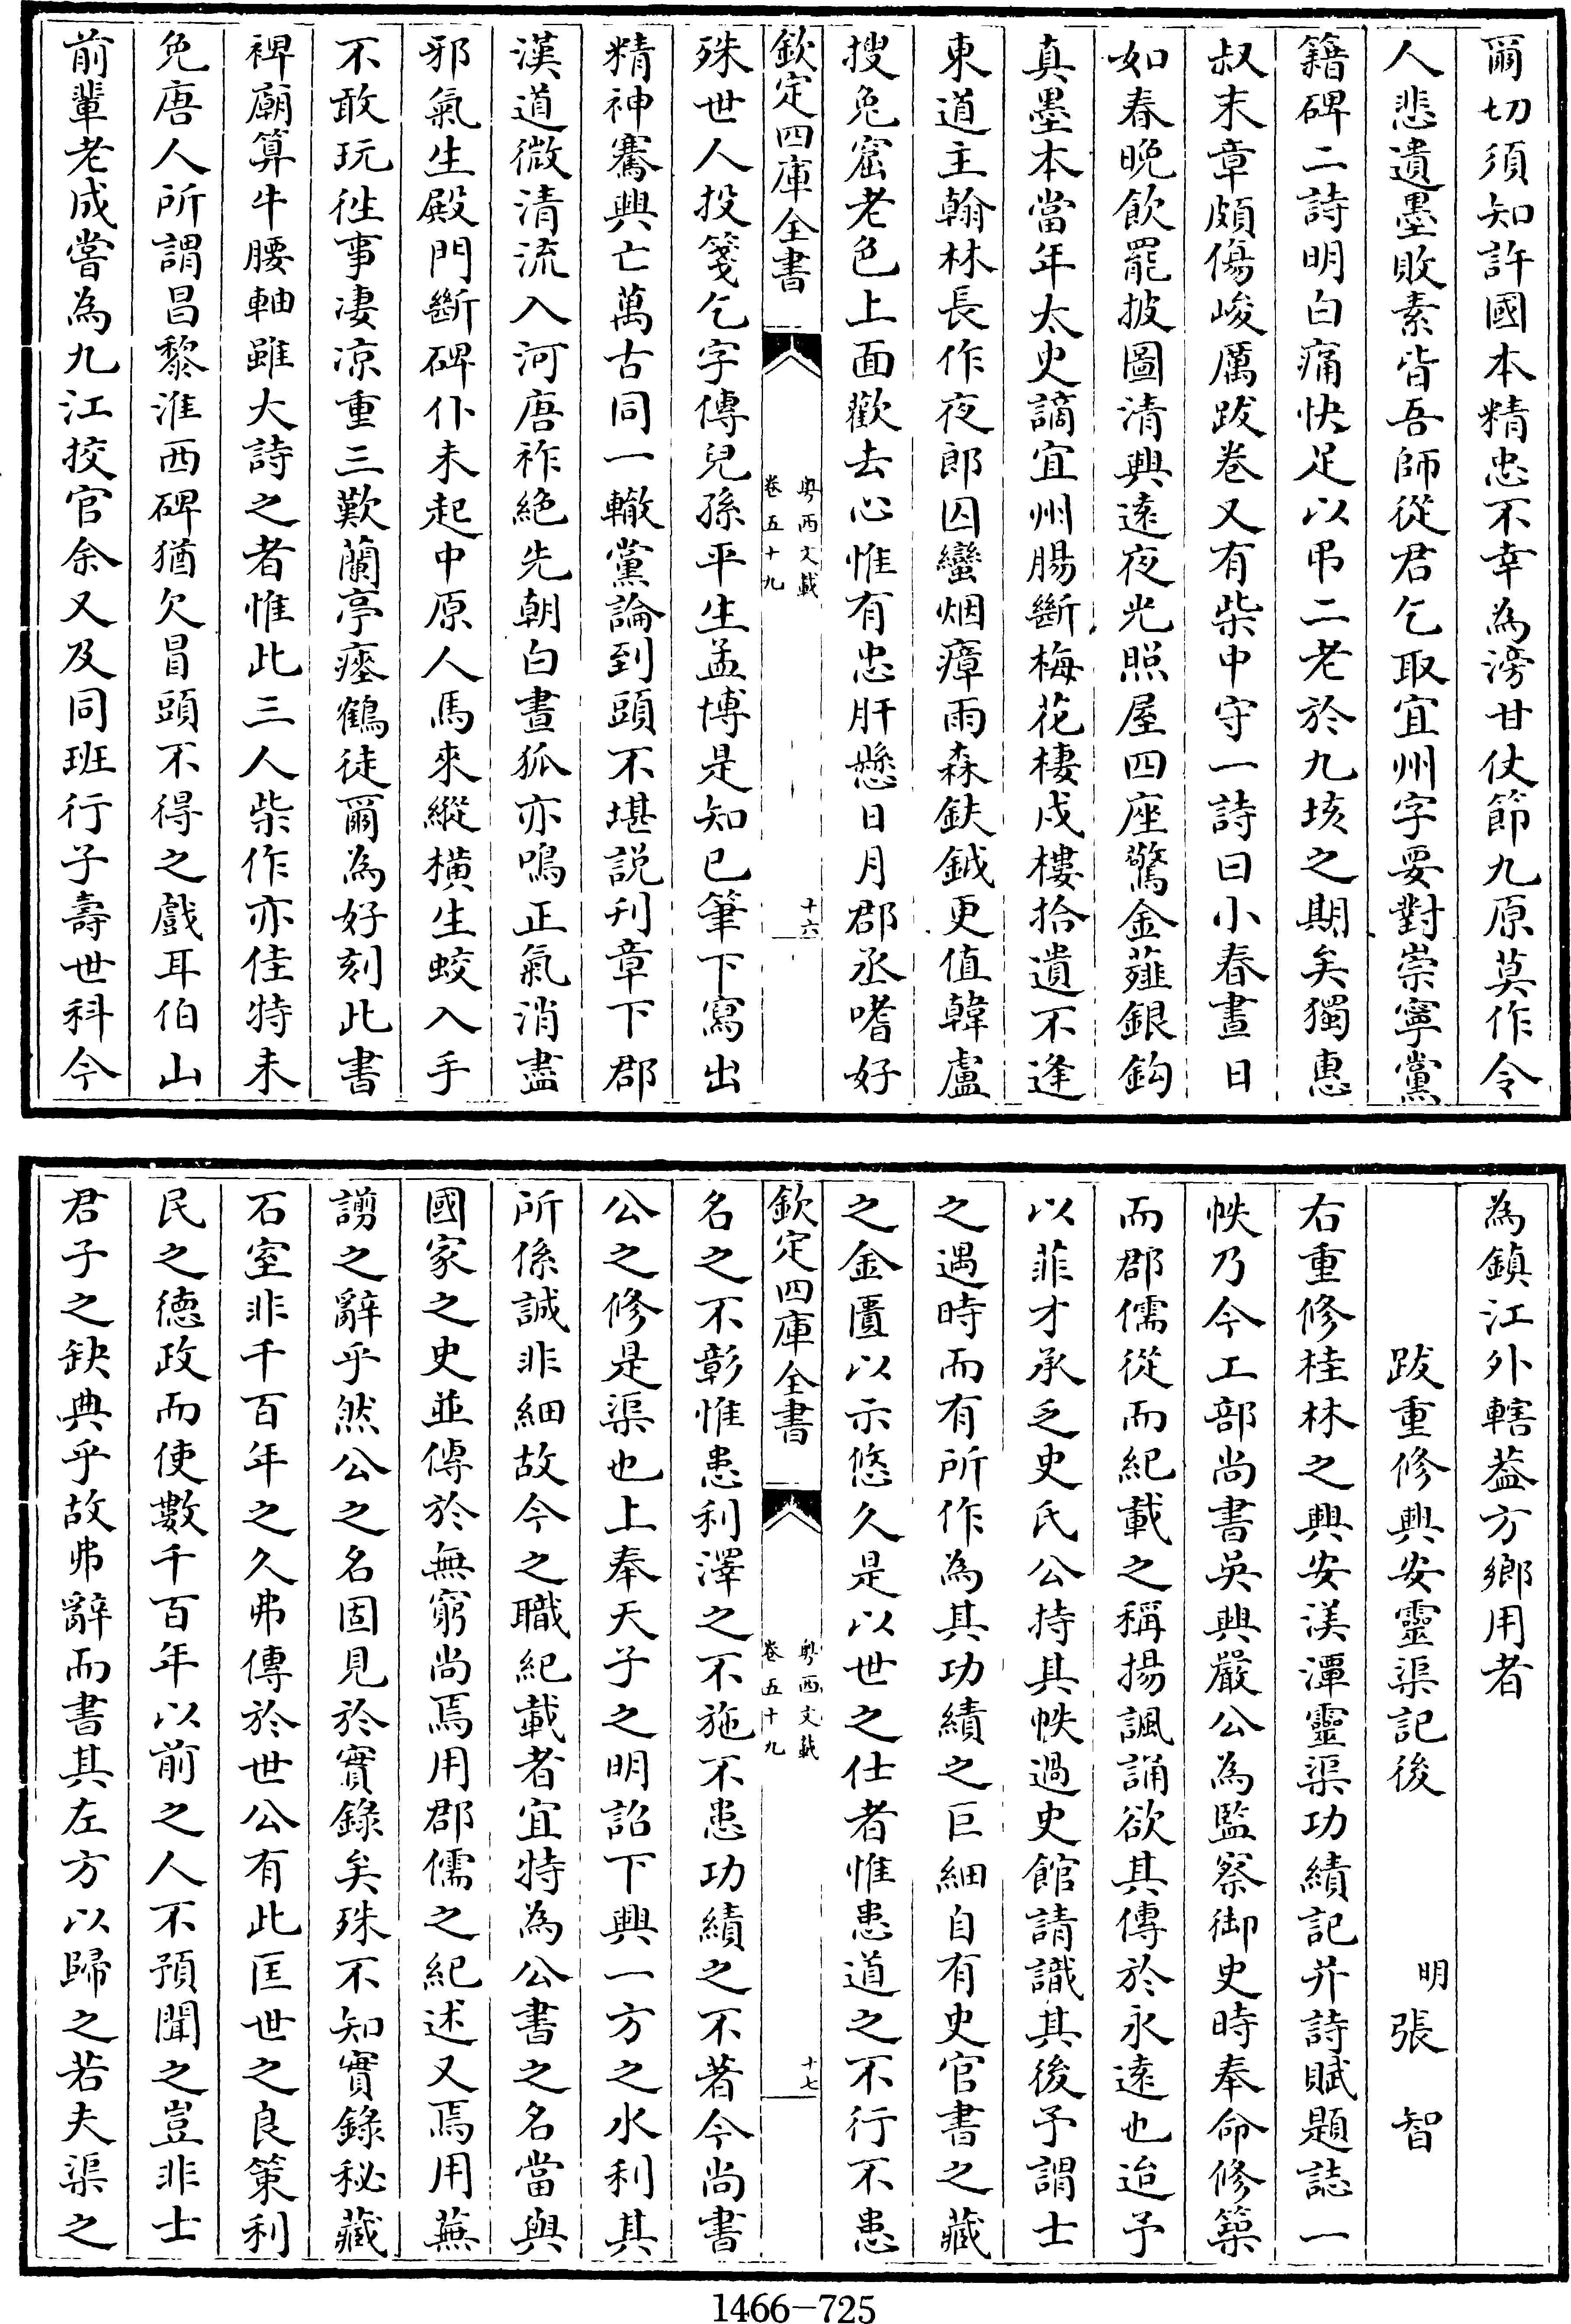 爾切須知許國本精忠不幸為滂甘仗節九原莫作令
人悲遺墨敗素皆吾師從君乞取宜州字要對崇寧黨
籍碑二詩明白痛快足以弔二老於九垓之期矣獨惠
叔末章頗傷峻厲跋卷又有柴中守一詩曰小春晝日
如春晚飲罷披圖清興遠夜光照屋四座驚金薤銀鈎
真墨本當年太史謫宜州腸斷梅花棲戍樓拾遺不逢
東道主翰林長作夜郎囚蠻烟瘴雨森鈇鉞更值韓盧
搜兔窟老色上面歡去心惟有忠肝懸日月郡丞嗜好
欽定四庫全書
粤西文載
卷五十九
十六
殊世人投箋乞字傳兒孫平生孟博是知已筆下寫出
精神騫興亡萬古同一轍黨論到頭不堪説刋章下郡
漢道微清流入河唐祚絶先朝白晝狐亦鳴正氣消盡
邪氣生殿門斷碑仆未起中原人馬來縱橫生蛟入手
不敢玩徃事凄凉重三歎蘭亭瘞鶴徒爾為好刻此書
裨廟算牛腰軸雖大詩之者惟此三人柴作亦佳特未
免唐人所謂昌黎淮西碑猶欠冒頭不得之戲耳伯山
前輩老成嘗為九江挍官余又及同班行子壽世科今
為鎮江外轄葢方鄉用者
跋重修興安靈渠記後
明張智
右重修桂林之興安渼潭靈渠功績記并詩賦題誌一
帙乃今工部尚書吳興嚴公為監察御史時奉命修築
而郡儒從而紀載之稱揚諷誦欲其傳於永遠也迨予
以菲才承乏史氏公持其帙過史館請識其後予謂士
之遇時而有所作為其功績之巨細自有史官書之藏
之金匱以示悠久是以世之仕者惟患道之不行不患
欽定四庫全書
粤西文載
卷五十九
十七
名之不彰惟患利澤之不施不患功績之不著今尚書
公之修是渠也上奉天子之明詔下興一方之水利其
所係誠非細故今之職紀載者宜特為公書之名當與
國家之史並傳於無窮尚焉用郡儒之紀述又焉用蕪
謭之辭乎然公之名固見於實錄矣殊不知實錄秘藏
石室非千百年之久弗傳於世公有此匡世之良策利
民之德政而使數千百年以前之人不預聞之豈非士
君子之缺典乎故弗辭而書其左方以歸之若夫渠之
1466-725